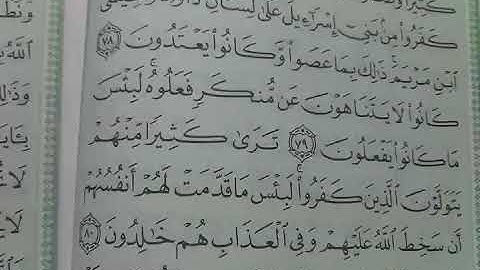 كَفَرُوا۟ مِنۢ بَنِىٓ إِسْرَٰٓءِيلَ عَلَىٰ لِسَانِ
ٱبْنِ مَرْيَمَ ۚ ذَٰلِكَ بِمَا عَصَوا۟ وَّكَانُوا۟ يَعْتَدُونَ ٧٨
كَانُوا۟ لَا يَتَنَاهَوْنَ عَن مُّنكَرٍ فَعَلُوهُ ۚ لَبِئْسَ
مَا كَانُوا۟ يَفْعَلُونَ ٧٩ تَرَىٰ كَثِيرًا مِّنْهُمْ
يَتَوَلَّوْنَ ٱلَّذِينَ كَفَرُوا۟ ۚ لَبِئْسَ مَا قَدَّمَتْ لَهُمْ أَنفُسُهُمْ
أَن سَخِطَ ٱللَّهُ عَلَيْهِمْ وَفِى ٱلْعَذَابِ هُمْ خَٰلِدُونَ ٨٠